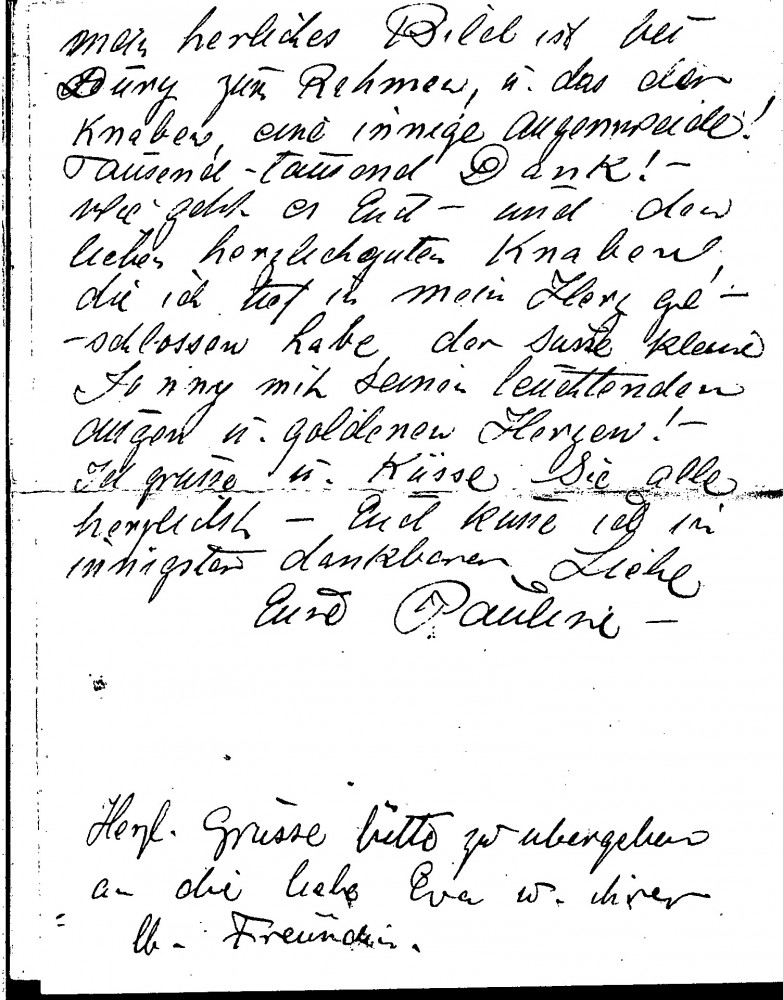 mein herliches Bild ist bei
Düry zum Rahmen, u. das der
Knaben, eine innige Augenweide!
Tausend-tausend Dank! –
wie geht es Euch – und den
lieben herzlichguten Knaben,
die ich tief in mein Herz ge –
– schlossen habe, der süsse kleine
mit seinen leuchtenden
Augen u. goldenen Herzen! –
Ich grüsse u. Küsse Sie alle
herzlichst – Euch küsse ich in
innigster dankbarer Liebe
Eure Pauline –
Herzl. Grüsse bitte zu übergeben
an die liebe Eva u. ihrer
lb. Freundin.